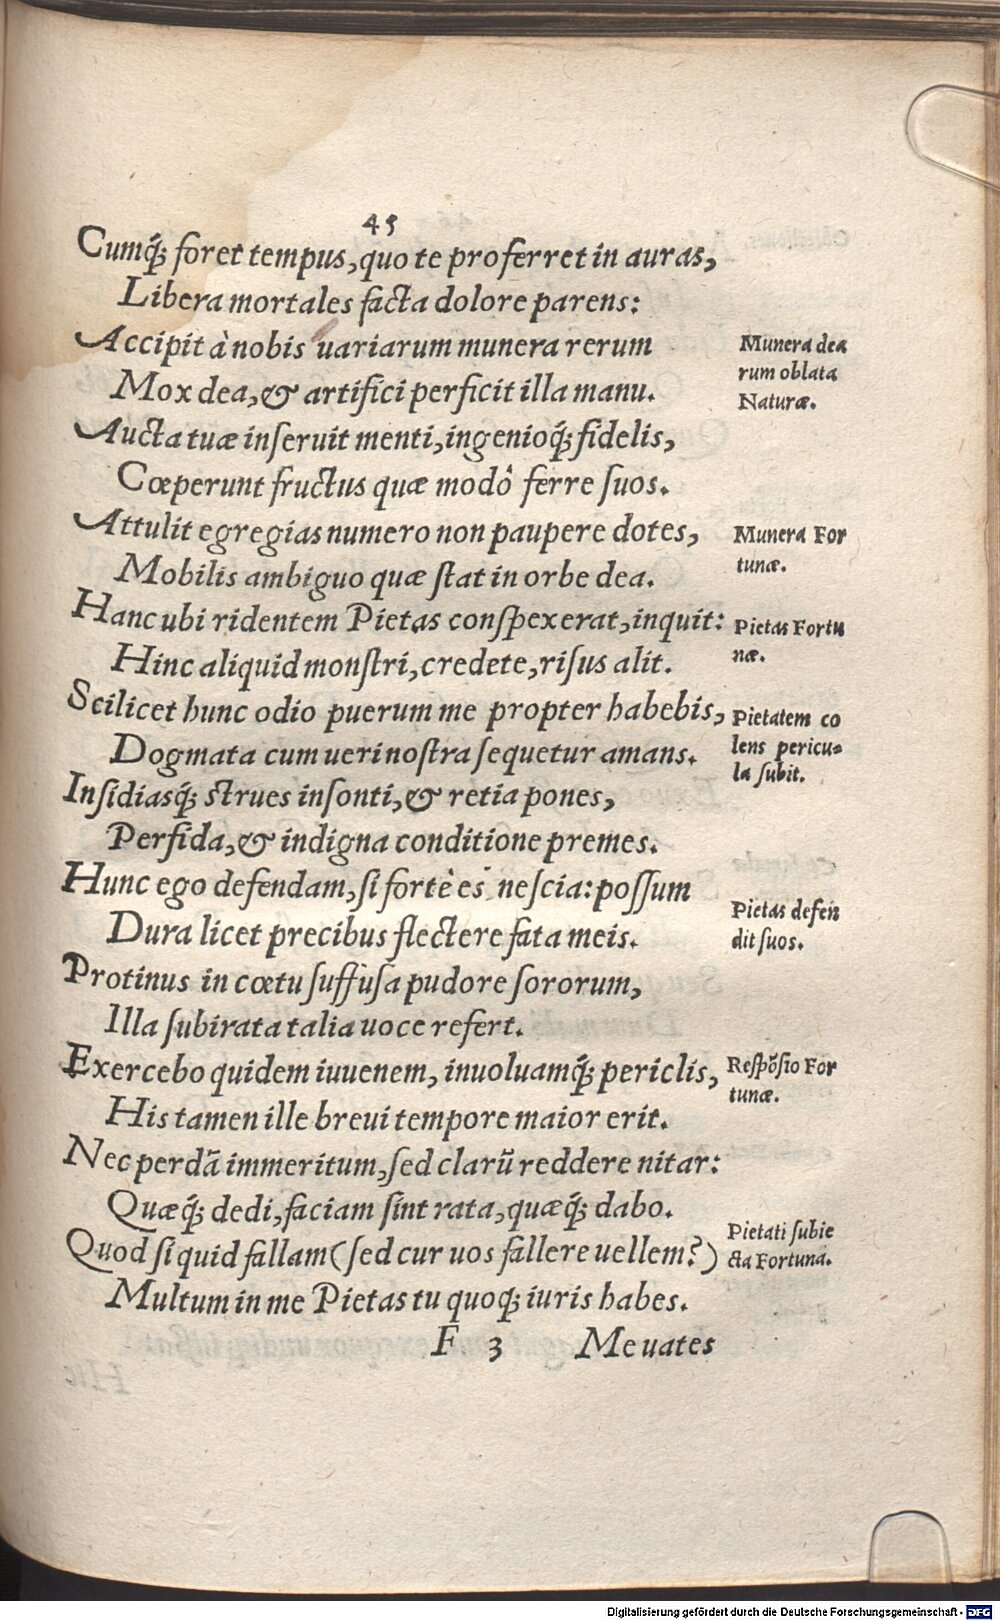 45
Cumq́; foret tempus, quo te proferret in auras,
Libera mortales facta dolore parens:
Accipit à nobis uariarum munera rerum
Munera dea
rum oblata
Naturæ.
Mox dea, & artifici perficit illa manu.
Aucta tuæ inseruit menti, ingenioq́; fidelis,
Cœperunt fructus quæ modô ferre suos.
Attulit egregias numero non paupere dotes,
Munera For
tunæ.
Mobilis ambiguo quæ stat in orbe dea.
Hanc ubi ridentem Pietas conspexerat, inquit:
Pietas Fortu
næ.
Hinc aliquid monstri, credete, risus alit.
Scilicet hunc odio puerum me propter habebis,
Pietatem co
lens pericu-
la subit.
Dogmata cum ueri nostra sequetur amans.
Insidiasq́; strues insonti, & retia pones,
Perfida, & indigna conditione premes.
Hunc ego defendam, si fortè es nescia: possum
Pietas defen
dit suos.
Dura licet precibus flectere fata meis.
Protinus in cœtu suffusa pudore sororum,
Illa subirata talia uoce refert.
Exercebo quidem iuuenem, inuoluamq́; periclis,
Respõsio For
tunæ.
His tamen ille breui tempore maior erit.
Nec perdã immeritum, sed clarũ reddere nitar:
Quæq́; dedi, faciam sint rata, quæq́; dabo.
Quod si quid fallam (sed cur uos fallere uellem?)
Pietati subie
cta Fortuna.
Multum in me Pietas tu quoq; iuris habes.
F 3 Me uates
Digitalisierung gefördert durch die Deutsche Forschungsgemeinschaft - DFG